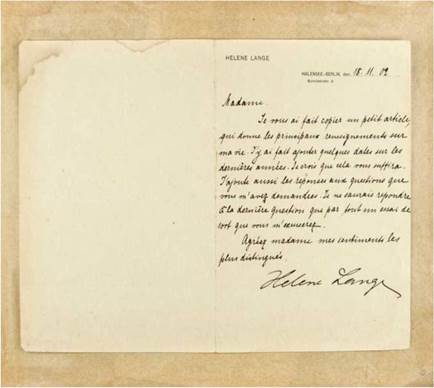 HELENE LANGE
HALENSEE-BERLIN, den 18. 11. 02
Madame.
Je vous ai fait copier un petit article,
qui donne les principaux renseignements sur
ma vie. J'y ai fait ajouter quelques dates sur les
dernières années. Je crois que cela vous suffira.
J'ajoute aussi les réponses aux questions que
vous m'avez demandées. Je ne saurais répondre
à la dernière question que par tout un essai de
sort que vous m'excuserez.
Agréez madame mes sentiments les
plus distingués.
Helene Lange